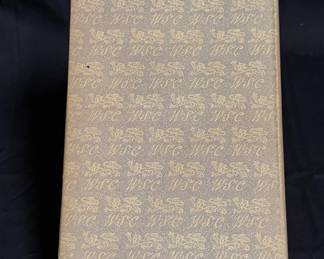 WSC WSC WSC WSC WSC WSC
WSC WSC WSC WSC WSC WSC
WSC WSC WSC WSC WSC WSC
WSC WSC WSC WSC WSC WSC
WSC WSC WSC WSC WSC WSC
WSC WSC WSC WSC WSC WSC
WSC WSC WSC WSC WSC WSC
WSC WSC WSC WSC WSC WSC